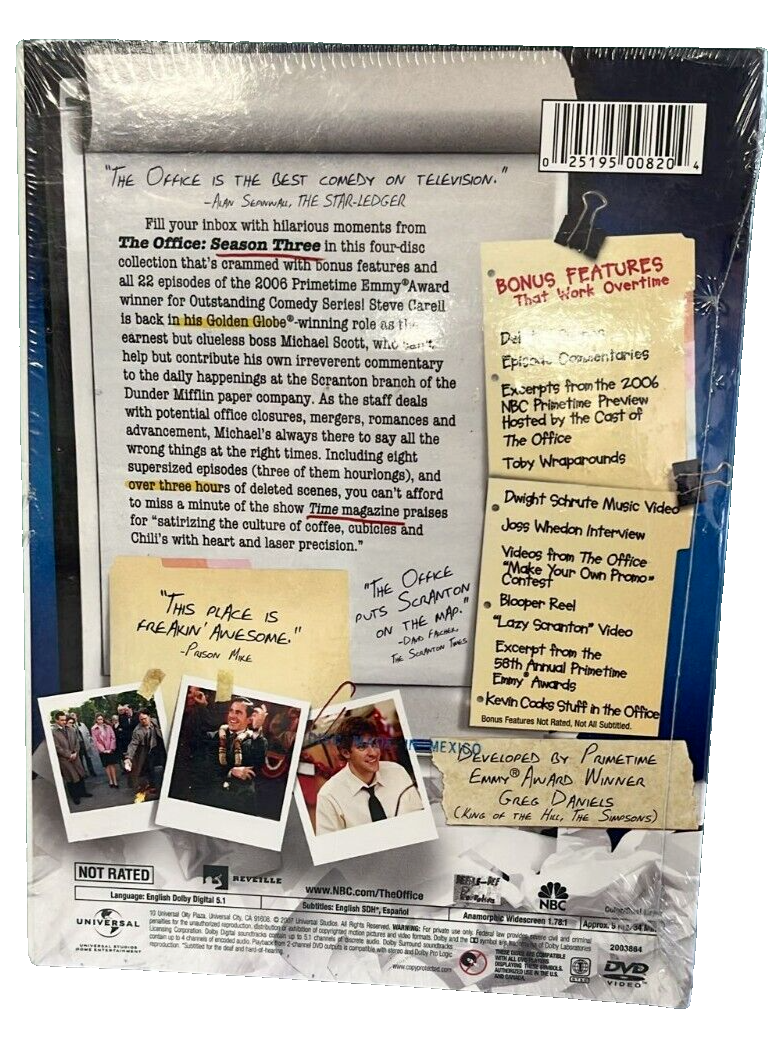 0 25195 00820 4
"THE OFFICE IS THE BEST COMEDY ON TELEVISION."
-ALAN SEPINWALL, THE STAR-LEDGER
Fill your inbox with hilarious moments from
The Office: Season Three in this four-disc
collection that's crammed with bonus features and
all 22 episodes of the 2006 Primetime Emmy® Award
winner for Outstanding Comedy Series! Steve Carell
is back in his Golden Globe®-winning role as the
earnest but clueless boss Michael Scott, who can't
help but contribute his own irreverent commentary
to the daily happenings at the Scranton branch of the
Dunder Mifflin paper company. As the staff deals
with potential office closures, mergers, romances and
advancement, Michael's always there to say all the
wrong things at the right times. Including eight
supersized episodes (three of them hourlongs), and
over three hours of deleted scenes, you can't afford
to miss a minute of the show Time magazine praises
for "satirizing the culture of coffee, cubicles and
Chili's with heart and laser precision."
"THIS PLACE IS
FREAKIN' AWESOME."
-PRISON MIKE
"THE OFFICE
PUTS SCRANTON
ON THE MAP."
-DAVID FALCHEK,
THE SCRANTON TIMES
BONUS FEATURES
That Work Overtime
Episode Commentaries
Excerpts from the 2006
NBC Primetime Preview
Hosted by the Cast of
The Office
Toby Wraparounds
Dwight Schrute Music Video
Joss Whedon Interview
Videos from The Office
"Make Your Own Promo"
Contest
Blooper Reel
"Lazy Scranton" Video
Excerpt from the
58th Annual Primetime
Emmy® Awards
Kevin Cooks Stuff in the Office
Bonus Features Not Rated, Not All Subtitled.
IN MEXICO
DEVELOPED BY PRIMETIME
EMMY® AWARD WINNER
GREG DANIELS
(KING OF THE HILL, THE SIMPSONS)
NOT RATED
REVEILLE
www.NBC.com/TheOffice
NBC
Language: English Dolby Digital 5.1
Subtitles: English SDH*, Español
Anamorphic Widescreen 1.78:1
Approx.
UNIVERSAL
UNIVERSAL STUDIOS
HOME ENTERTAINMENT
10 Universal City Plaza, Universal City, CA 91608. © 2007 Universal Studios. All Rights Reserved. WARNING: For private use only. Federal law provides severe civil and criminal
penalties for the unauthorized reproduction, distribution or exhibition of copyrighted motion pictures and video formats. Dolby and the DD symbol are of Dolby Laboratories
Licensing Corporation. Dolby Digital soundtracks contain up to 5.1 channels of discrete audio. Dolby Surround soundtracks
contain up to 4 channels of encoded audio. Playback from 2-channel DVD outputs is compatible with stereo and Dolby Pro Logic
reproduction. *Subtitled for the deaf and hard-of-hearing.
www.copyprotected.com
THESE DISCS ARE COMPATIBLE
WITH ALL DVD PLAYERS
DISPLAYING THESE SYMBOLS.
AUTHORIZED USE IN THE U.S.
AND CANADA.
2003864
DVD
VIDEO